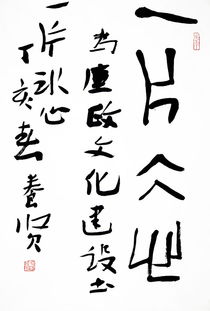 一片仌心
为廉政文化建设书
一片冰心
丁亥春養